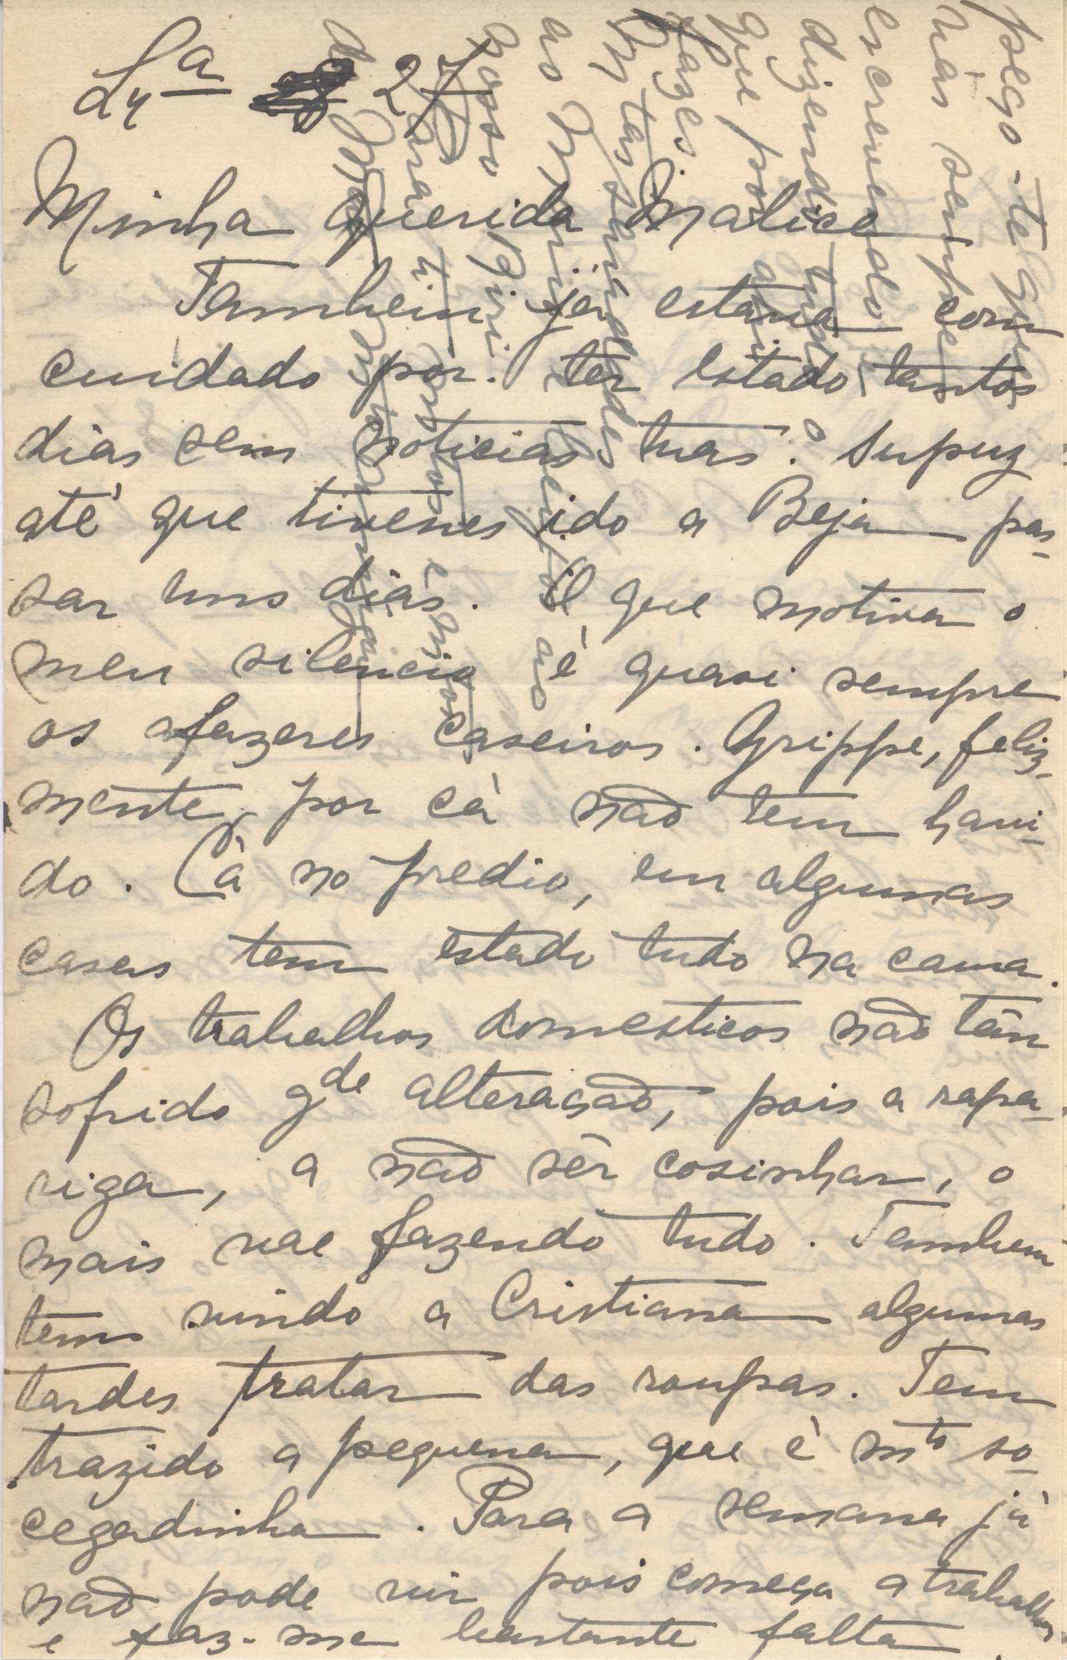 Lx.ª 27
Minha querida Malice
Tambem já estava com
cuidado por ter estado tantos
dias sem noticias tuas. Supuz
até que tivesses ido a Beja pas-
sar uns dias. O que motiva o
meu silencio é quasi sempre
os afazeres caseiros. Grippe, feliz-
mente, por cá não tem havi-
do. Cá no predio, em algumas
casas tem estado tudo na cama.
Os trabalhos domesticos não têm
sofrido gde alteração, pois a rapa-
riga, a não sêr cosinhar, o
mais vae fazendo tudo. Tambem
tem vindo a Cristiana algumas
tardes tratar das roupas. Tem
trazido a pequena, que é mto so-
cegadinha. Para a semana já
não pode vir pois começa a trabalhar
e faz-me bastante falta.
peço-te que
vás sempre
escrevendo
dizendo tudo o
que por ahi
fazes.
Mtas saudades